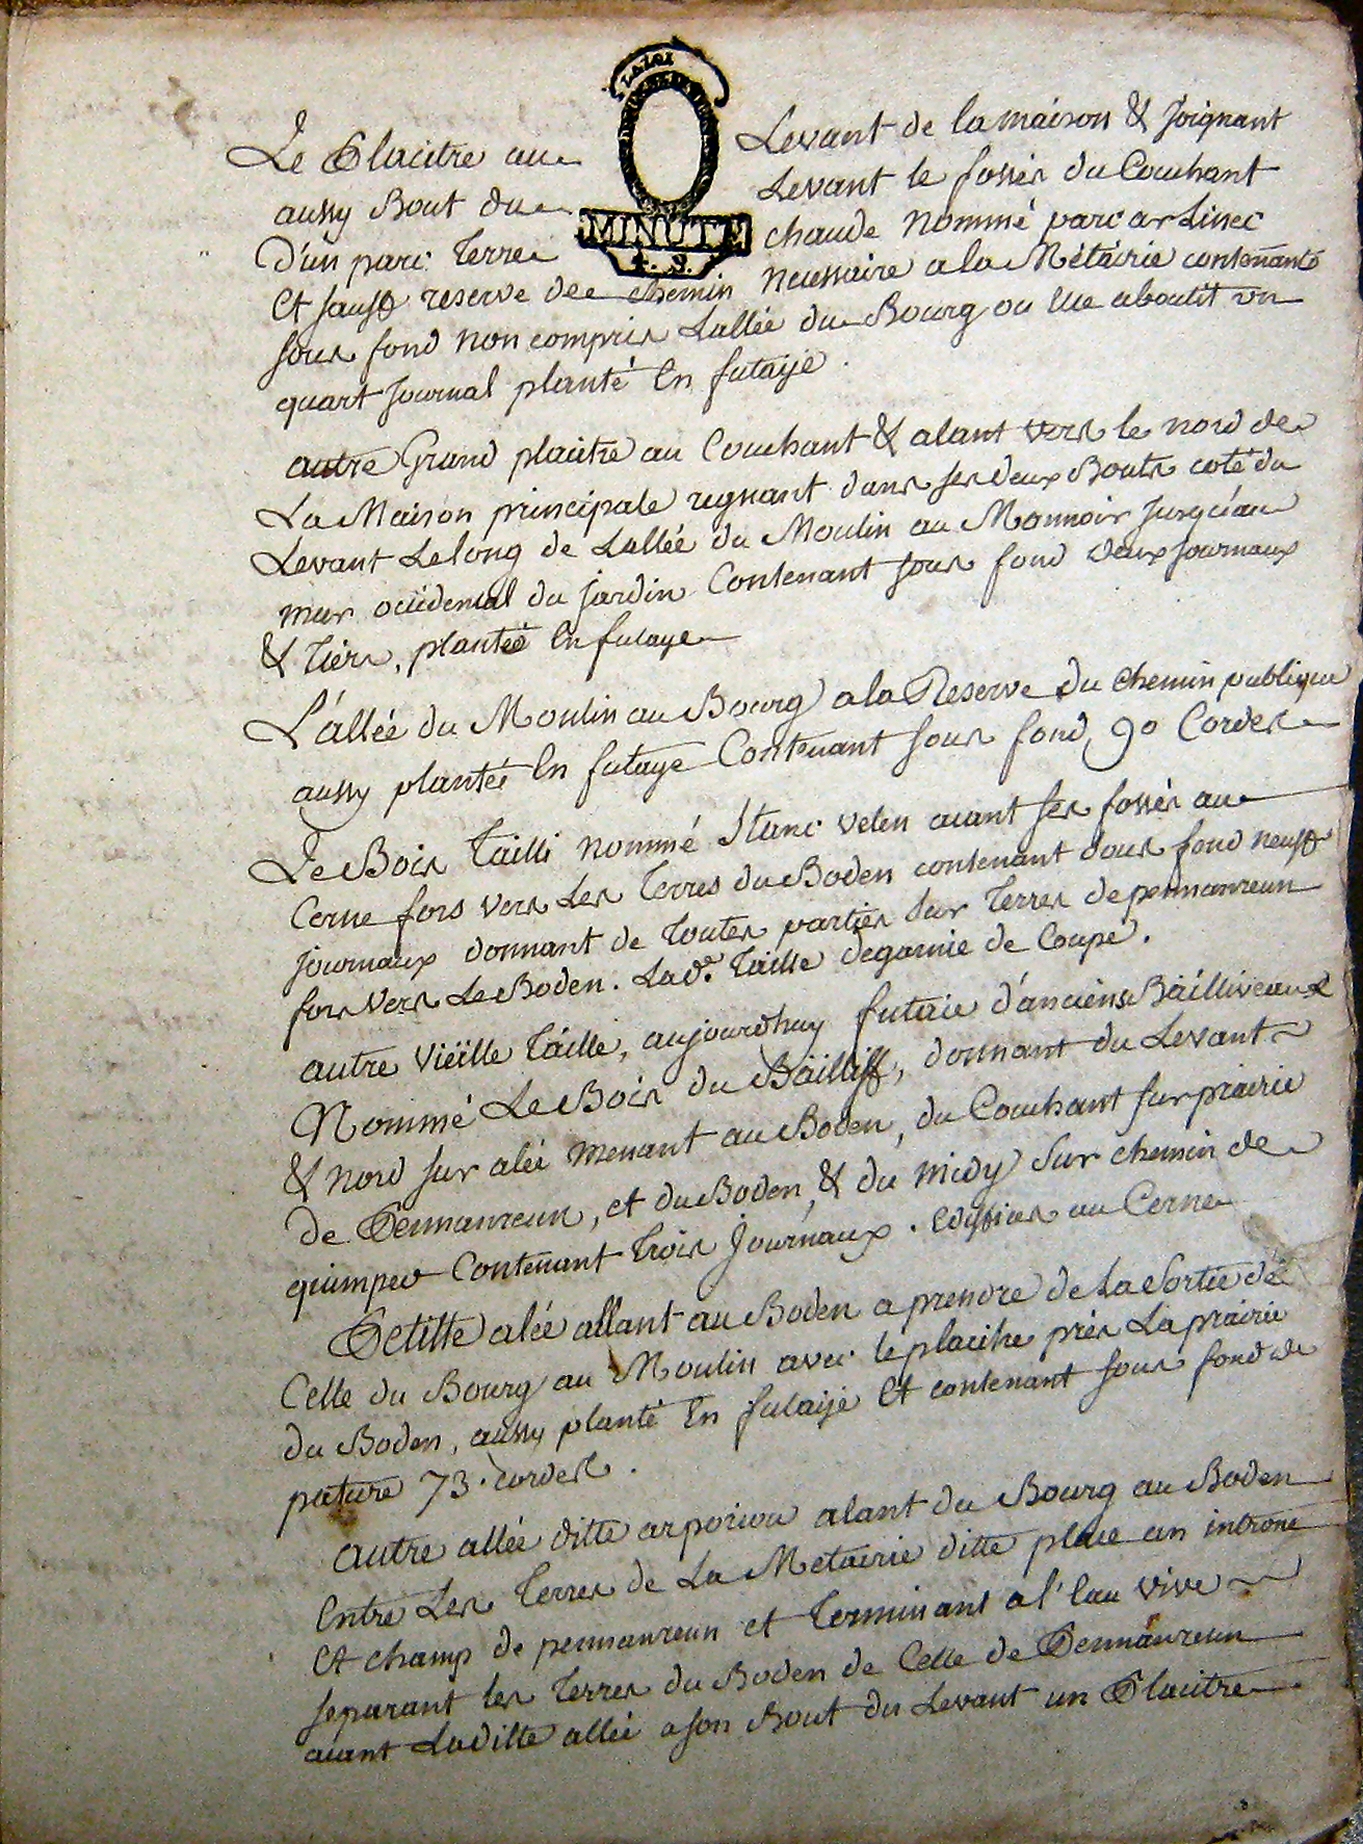 LA LOI
MINUTE
Le Placitre au Levant de la maison & joignant
aussy Bout du Levant le fossés du Couchant
D'un parc Terre chaude Nommé parc ar Linec
Et sauff reserve de chemin necessaire a la Métairie contenant
sous fond non compris Lallée du Bourg ou Elle aboutit un
quart Journal planté En futaije.
autre Grand placitre au Couchant & alant vers le nord de
La Maison principale regnant dans ses deux Bouts coté du
Levant Lelong de Lallée du Moulin au Mannoir Jusqu'au
mur occidental du jardin Contenant sous fond deux journaux
& tiers, plantée En futaye
L'allée du Moulin au Bourg a la Reserve du chemin publique
aussy plantée En futaye Contenant sous fond, 90 Cordes
Le Bois Tailli nommé Stanc velen aiant ses fossés au
Cerne fors vers Les Terres du Boden contenant sous fond neuff
journaux donnant de toutes parties sur Terres de pennanreun
fors vers Le Boden. Lade. Taille degarnie de Coupe.
autre vieille Taille, aujourdhuy futaie d'anciens Bailliveaux
Nommé Le Bois du Bailliff, donnant du Levant
& Nord sur alée menant au Boden, du Couchant sur prairie
de Pennanreun, et du Boden, & du midy sur chemin de
quimper Contenant trois Journaux. Ediffices au Cerne
Petitte alée allant au Boden a prendre de La Sortie de
Celle du Bourg au Moulin avec le placitre près La prairie
du Boden, aussy planté En futaije Et contenant sous fond de
pature 73. cordes.
autre allée ditte ar poriou alant du Bourg au Boden
Entre Les Terres de La Metairie ditte place an introne
Et champ de pennanreun et terminant a l'Eau vive
separant les Terres du Boden de Celle de Pennanreun
aiant Laditte allée a son Bout du Levant un Placitre